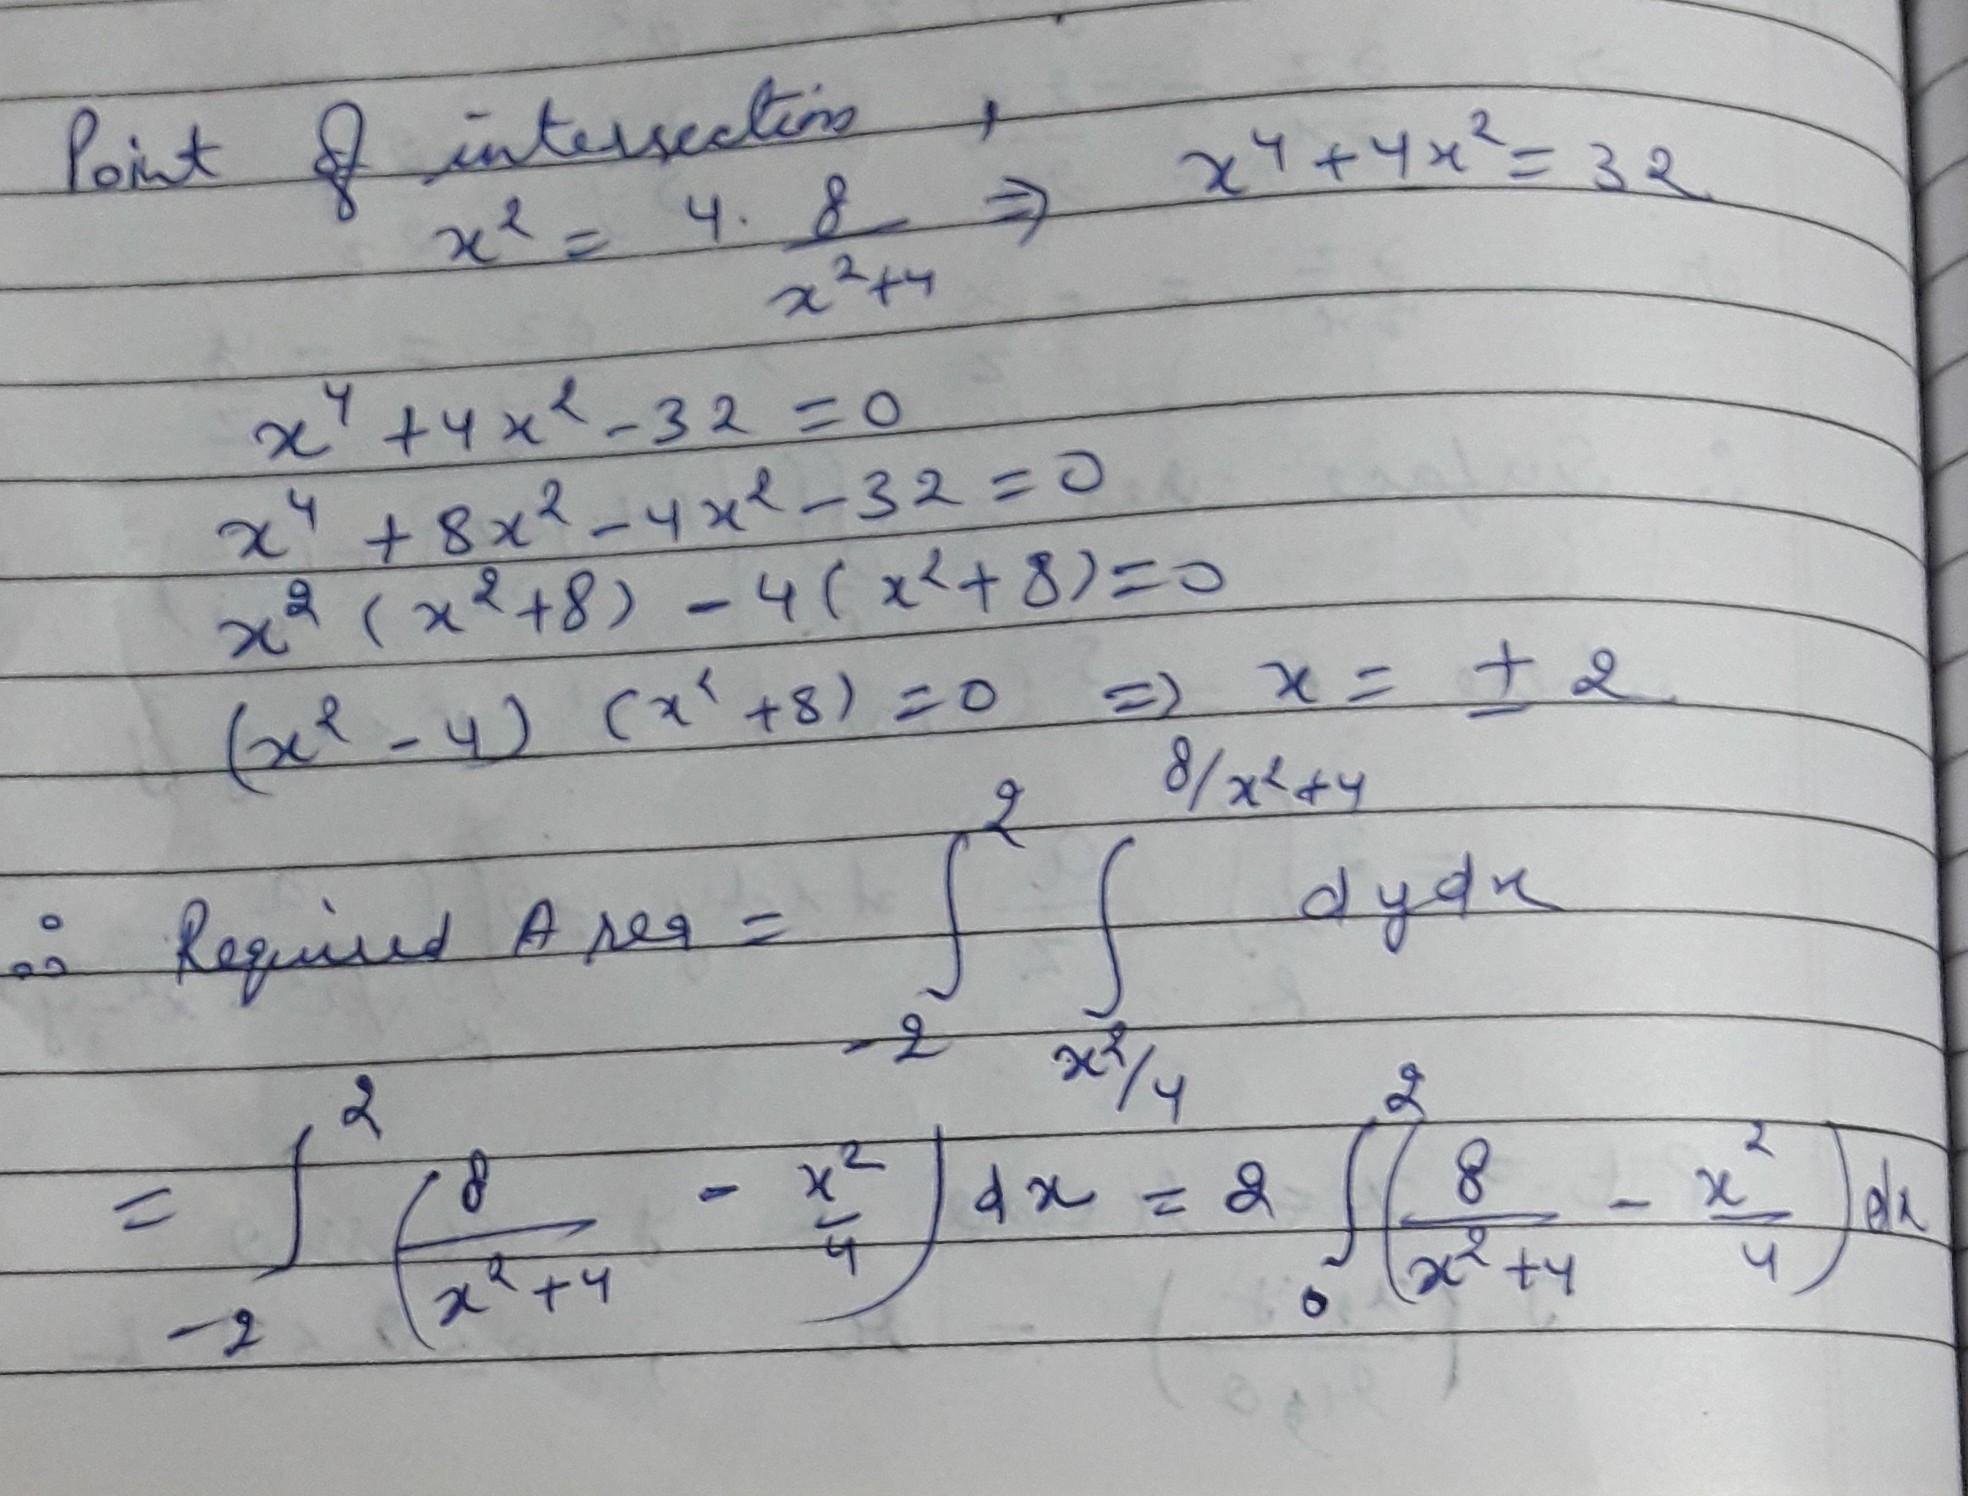 Point of intersection,
x² = 4. 8/(x²+4) ⇒ x⁴+4x²=32
x⁴+4x²-32=0
x⁴+8x²-4x²-32=0
x²(x²+8)-4(x²+8)=0
(x²-4)(x²+8)=0 ⇒ x=±2
∴ Required Area = ∫_{-2}^{2} ∫_{x²/4}^{8/x²+4} dydx
= ∫_{-2}^{2} (8/(x²+4) - x²/4) dx = 2 ∫_{0}^{2} (8/(x²+4) - x²/4) dx